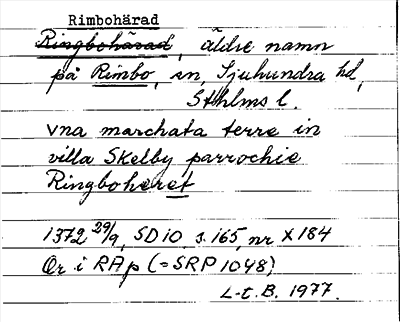 Rimbohärad
Ringbohärad, äldre namn
på Rimbo, sn, Sjuhundra hd,
Sthlms l.
vna marchata terre in
villa Skelby parrochie
Ringboheret
1372 29/9, SD 10 s. 165, nr X 184
Or i RAp (= SRP 1048)
L-t. B. 1977.